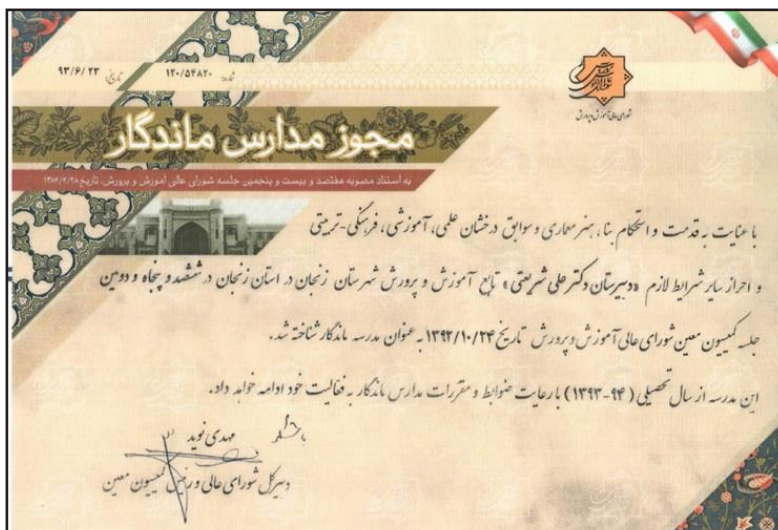 شماره: ۱۲۰/۵۴۸۲۰
تاریخ: ۹۳/۶/۲۳
شورای عالی آموزش و پرورش
مجوز مدارس ماندگار
به استناد مصوبه هفتصد و بیست و پنجمین جلسه شورای عالی آموزش و پرورش، تاریخ ۱۳۸۴/۲/۲۸
با عنایت به قدمت و استحکام بنا، هنر معماری و سوابق درخشان علمی، آموزشی، فرهنگی-تربیتی
و احراز سایر شرایط لازم «دبیرستان دکتر علی شریعتی» تابع آموزش و پرورش شهرستان زنجان در استان زنجان در ششصد و پنجاه و دومین
جلسه کمیسیون معین شورای عالی آموزش و پرورش تاریخ ۱۳۹۲/۱۰/۲۴ به عنوان مدرسه ماندگار شناخته شد.
این مدرسه از سال تحصیلی (۹۴-۱۳۹۳) با رعایت ضوابط و مقررات مدارس ماندگار به فعالیت خود ادامه خواهد داد.
مهدی نوید
دبیرکل شورای عالی و رئیس کمیسیون معین